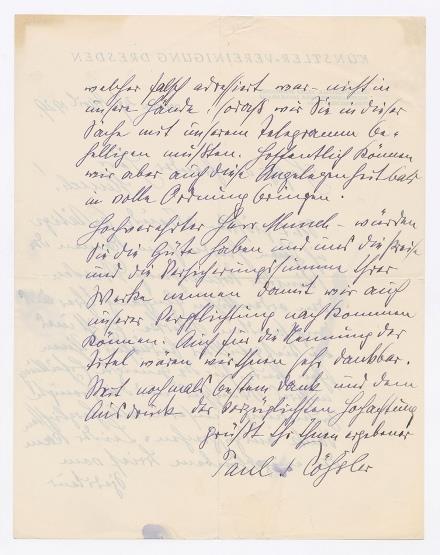 welcher falsch adressiert war – nicht in
unsere Hände, sodaß wir Sie in dieser
Sache mit unserem Telegramm be-
helligen mußten. Hoffentlich können
wir aber auch diese Angelegenheit bald
in volle Ordnung bringen.
Hochverehrter Herr Munch – würden
Sie die Güte haben und uns die Preise
und die Versicherungssumme Ihrer
Werke nennen damit wir auch
unserer Verpflichtung nachkommen
können. Auch für die Nennung der
Titel wären wir Ihnen sehr dankbar.
Mit nochmals bestem Dank und dem
Ausdruck der vorzüglichsten Hochachtung
grüßt Ihnen ergebener
Paul Rößler
KÜNSTLER-VEREINIGUNG DRESDEN